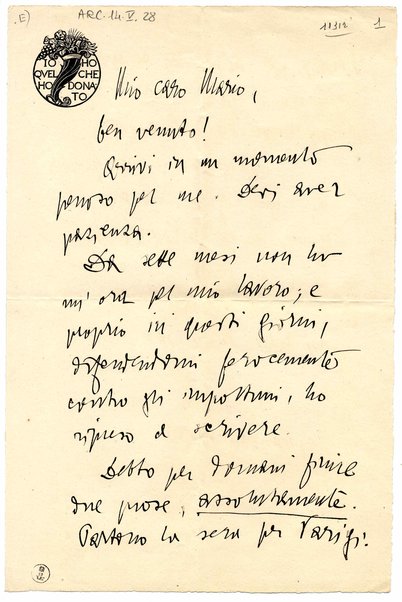 E)
ARC. 14. V. 28
11312
1
IO HO
QUEL CHE
HO DONA
TO
Mio caro Mario,
ben venuto!
Arrivi in un momento
penoso pel me. Devi aver
pazienza.
Da sette mesi non ho
un' ora pel mio lavoro; e
proprio in questi giorni,
difendendomi ferocemente
contro gli importuni, ho
ripreso a scrivere.
Debbo per domani finire
due prose, assolutamente.
Partono la sera per Parigi.